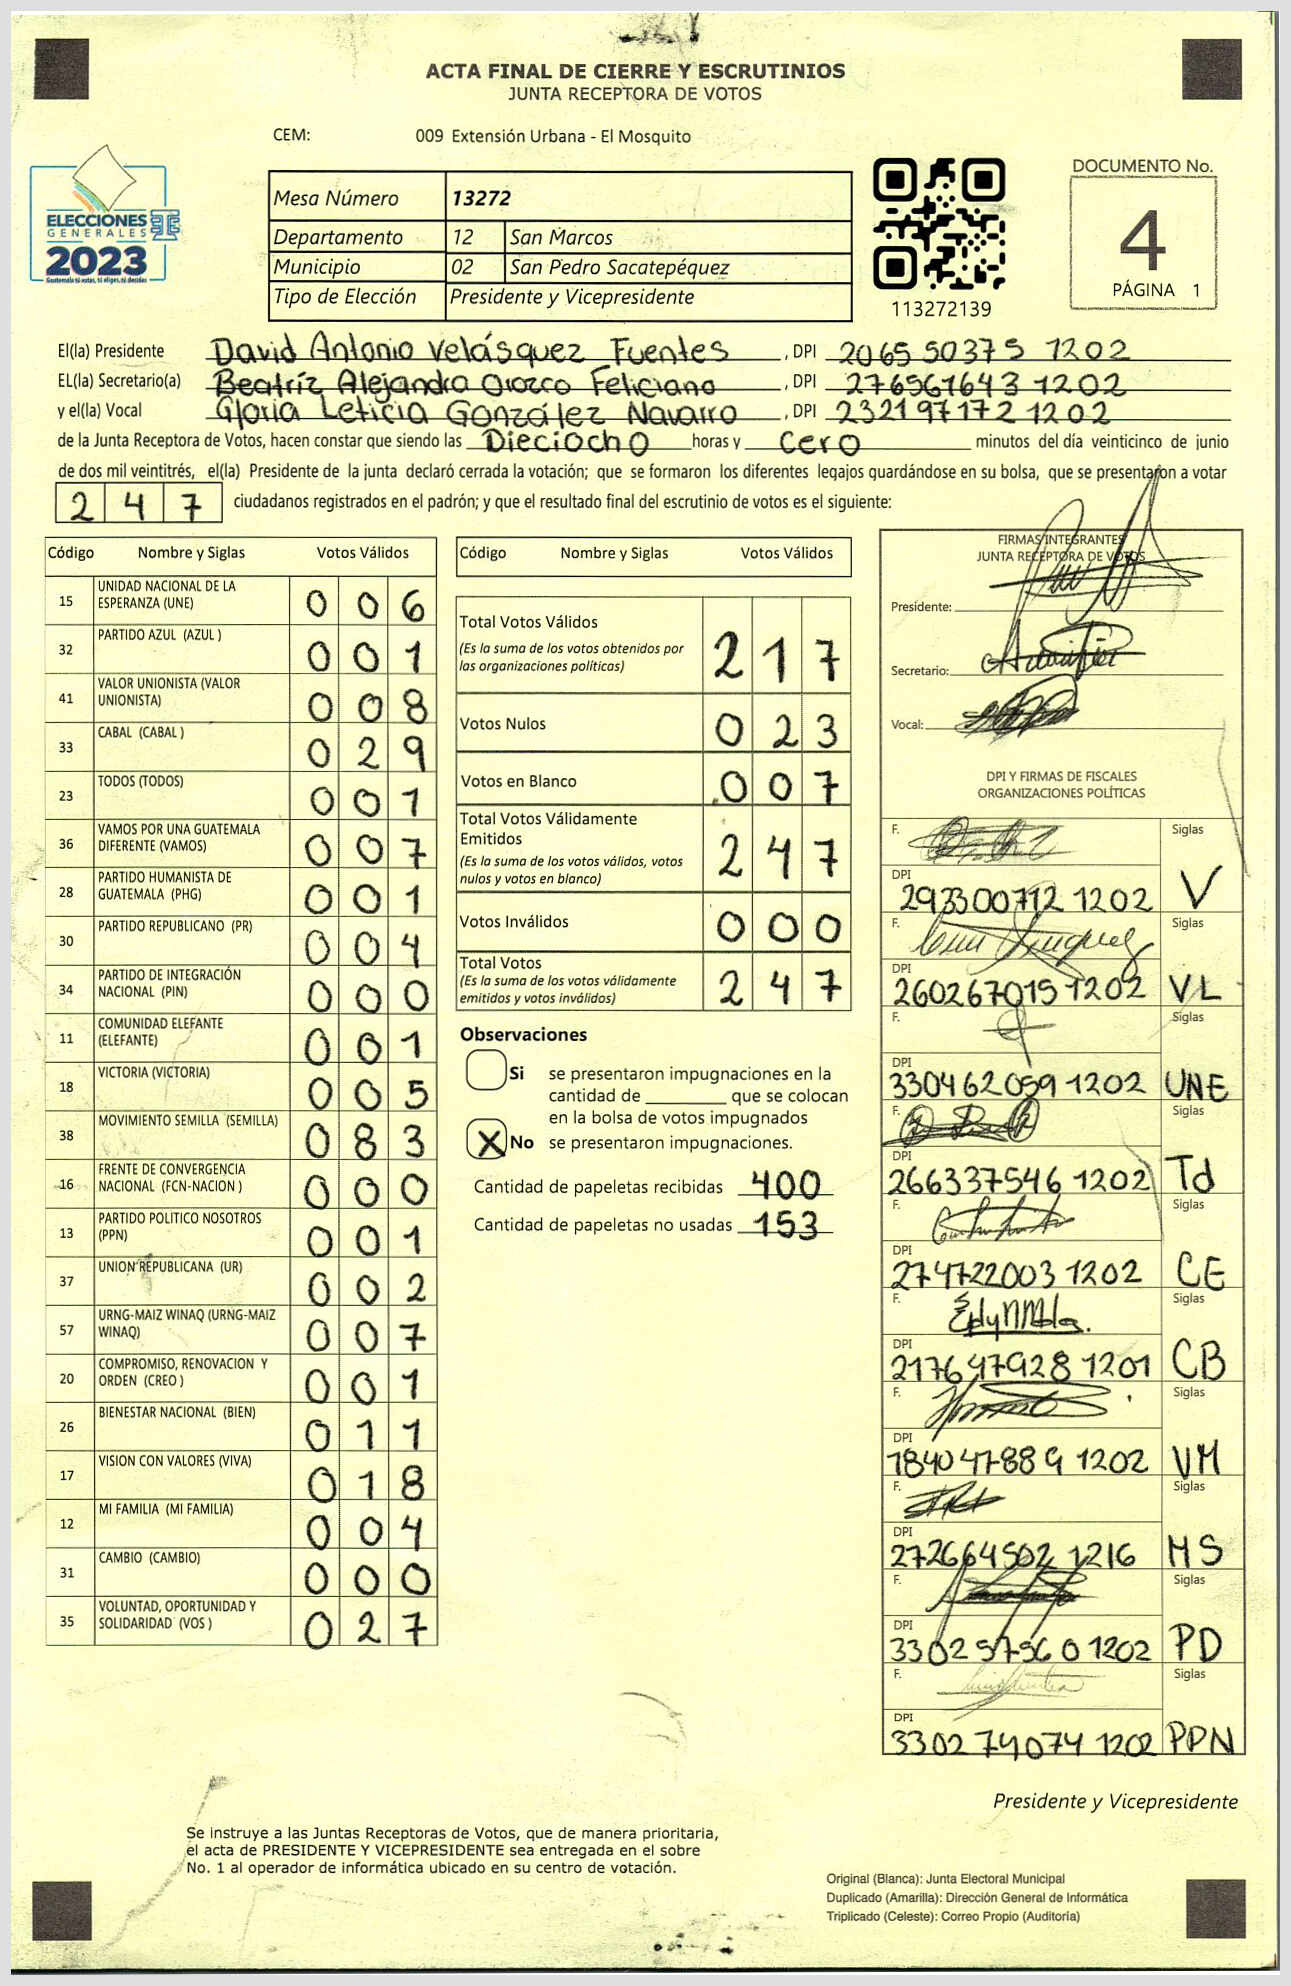 ACTA FINAL DE CIERRE Y ESCRUTINIOS
JUNTA RECEPTORA DE VOTOS
CEM: 009 Extensión Urbana - El Mosquito
ELECCIONES
GENERALES
2023
Guatemala tú votas, tú eliges, tú decides
Mesa Número 13272
Departamento 12 San Marcos
Municipio 02 San Pedro Sacatepéquez
Tipo de Elección Presidente y Vicepresidente
113272139
DOCUMENTO No.
4
PÁGINA 1
El(la) Presidente David Antonio Velásquez Fuentes , DPI 2065 50375 1202
EL(la) Secretario(a) Beatríz Alejandra Orozco Feliciano , DPI 276561643 1202
y el(la) Vocal Gloria Leticia González Navarro , DPI 2321 97172 1202
de la Junta Receptora de Votos, hacen constar que siendo las Dieciocho horas y cero minutos del día veinticinco de junio
de dos mil veintitrés, el(la) Presidente de la junta declaró cerrada la votación; que se formaron los diferentes legajos guardándose en su bolsa, que se presentaron a votar
2 4 7 ciudadanos registrados en el padrón; y que el resultado final del escrutinio de votos es el siguiente:
Código Nombre y Siglas Votos Válidos
15 UNIDAD NACIONAL DE LA ESPERANZA (UNE) 0 0 6
32 PARTIDO AZUL (AZUL ) 0 0 1
41 VALOR UNIONISTA (VALOR UNIONISTA) 0 0 8
33 CABAL (CABAL ) 0 2 9
23 TODOS (TODOS) 0 0 1
36 VAMOS POR UNA GUATEMALA DIFERENTE (VAMOS) 0 0 7
28 PARTIDO HUMANISTA DE GUATEMALA (PHG) 0 0 1
30 PARTIDO REPUBLICANO (PR) 0 0 4
34 PARTIDO DE INTEGRACIÓN NACIONAL (PIN) 0 0 0
11 COMUNIDAD ELEFANTE (ELEFANTE) 0 0 1
18 VICTORIA (VICTORIA) 0 0 5
38 MOVIMIENTO SEMILLA (SEMILLA) 0 8 3
16 FRENTE DE CONVERGENCIA NACIONAL (FCN-NACION ) 0 0 0
13 PARTIDO POLITICO NOSOTROS (PPN) 0 0 1
37 UNION REPUBLICANA (UR) 0 0 2
57 URNG-MAIZ WINAQ (URNG-MAIZ WINAQ) 0 0 7
20 COMPROMISO, RENOVACION Y ORDEN (CREO ) 0 0 1
26 BIENESTAR NACIONAL (BIEN) 0 1 1
17 VISION CON VALORES (VIVA) 0 1 8
12 MI FAMILIA (MI FAMILIA) 0 0 4
31 CAMBIO (CAMBIO) 0 0 0
35 VOLUNTAD, OPORTUNIDAD Y SOLIDARIDAD (VOS ) 0 2 7
Código Nombre y Siglas Votos Válidos
Total Votos Válidos 2 1 7
(Es la suma de los votos obtenidos por
las organizaciones políticas)
Votos Nulos 0 2 3
Votos en Blanco 0 0 7
Total Votos Válidamente
Emitidos 2 4 7
(Es la suma de los votos válidos, votos
nulos y votos en blanco)
Votos Inválidos 0 0 0
Total Votos 2 4 7
(Es la suma de los votos válidamente
emitidos y votos inválidos)
Observaciones
Si se presentaron impugnaciones en la
cantidad de ________ que se colocan
en la bolsa de votos impugnados
X No se presentaron impugnaciones.
Cantidad de papeletas recibidas 400
Cantidad de papeletas no usadas 153
FIRMAS INTEGRANTES
JUNTA RECEPTORA DE VOTOS
Presidente:
Secretario:
Vocal:
DPI Y FIRMAS DE FISCALES
ORGANIZACIONES POLÍTICAS
F. Siglas
DPI 293300712 1202 V
F. Siglas
DPI 260267015 1202 VL
F. Siglas
DPI 330462059 1202 UNE
F. Siglas
DPI 266337546 1202 Td
F. Siglas
DPI 274722003 1202 CE
F. Siglas
DPI 217647928 1201 CB
F. Siglas
DPI 184047889 1202 VM
F. Siglas
DPI 272664502 1216 MS
F. Siglas
DPI 330257560 1202 PD
F. Siglas
DPI 330274074 1202 PPN
Presidente y Vicepresidente
Se instruye a las Juntas Receptoras de Votos, que de manera prioritaria,
el acta de PRESIDENTE Y VICEPRESIDENTE sea entregada en el sobre
No. 1 al operador de informática ubicado en su centro de votación.
Original (Blanca): Junta Electoral Municipal
Duplicado (Amarilla): Dirección General de Informática
Triplicado (Celeste): Correo Propio (Auditoría)